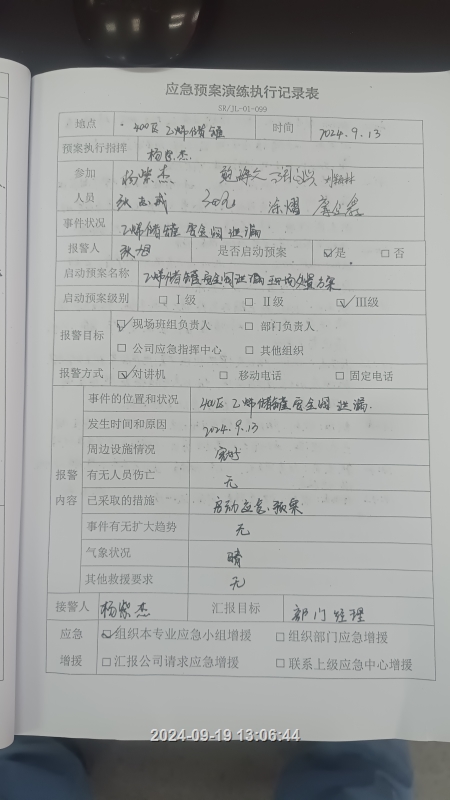 应急预案演练执行记录表
SR/JL-01-099
地点 400区乙烯储罐 时间 2024.9.13
预案执行指挥 杨崇杰
参加 杨崇杰
人员
事件状况 乙烯储罐安全阀泄漏
报警人 是否启动预案 ☑是 □否
启动预案名称 乙烯储罐安全阀泄漏现场处置方案
启动预案级别 □Ⅰ级 □Ⅱ级 ☑Ⅲ级
报警目标 ☑现场班组负责人 □部门负责人
□公司应急指挥中心 □其他组织
报警方式 ☑对讲机 □移动电话 □固定电话
事件的位置和状况 400区乙烯储罐安全阀泄漏.
发生时间和原因 2024.9.13
周边设施情况 完好
报警 有无人员伤亡 无
内容 已采取的措施 启动应急预案
事件有无扩大趋势 无
气象状况 晴
其他救援要求 无
接警人 杨崇杰 汇报目标 部门经理
应急 ☑组织本专业应急小组增援 □组织部门应急增援
增援 □汇报公司请求应急增援 □联系上级应急中心增援
2024-09-19 13:06:44